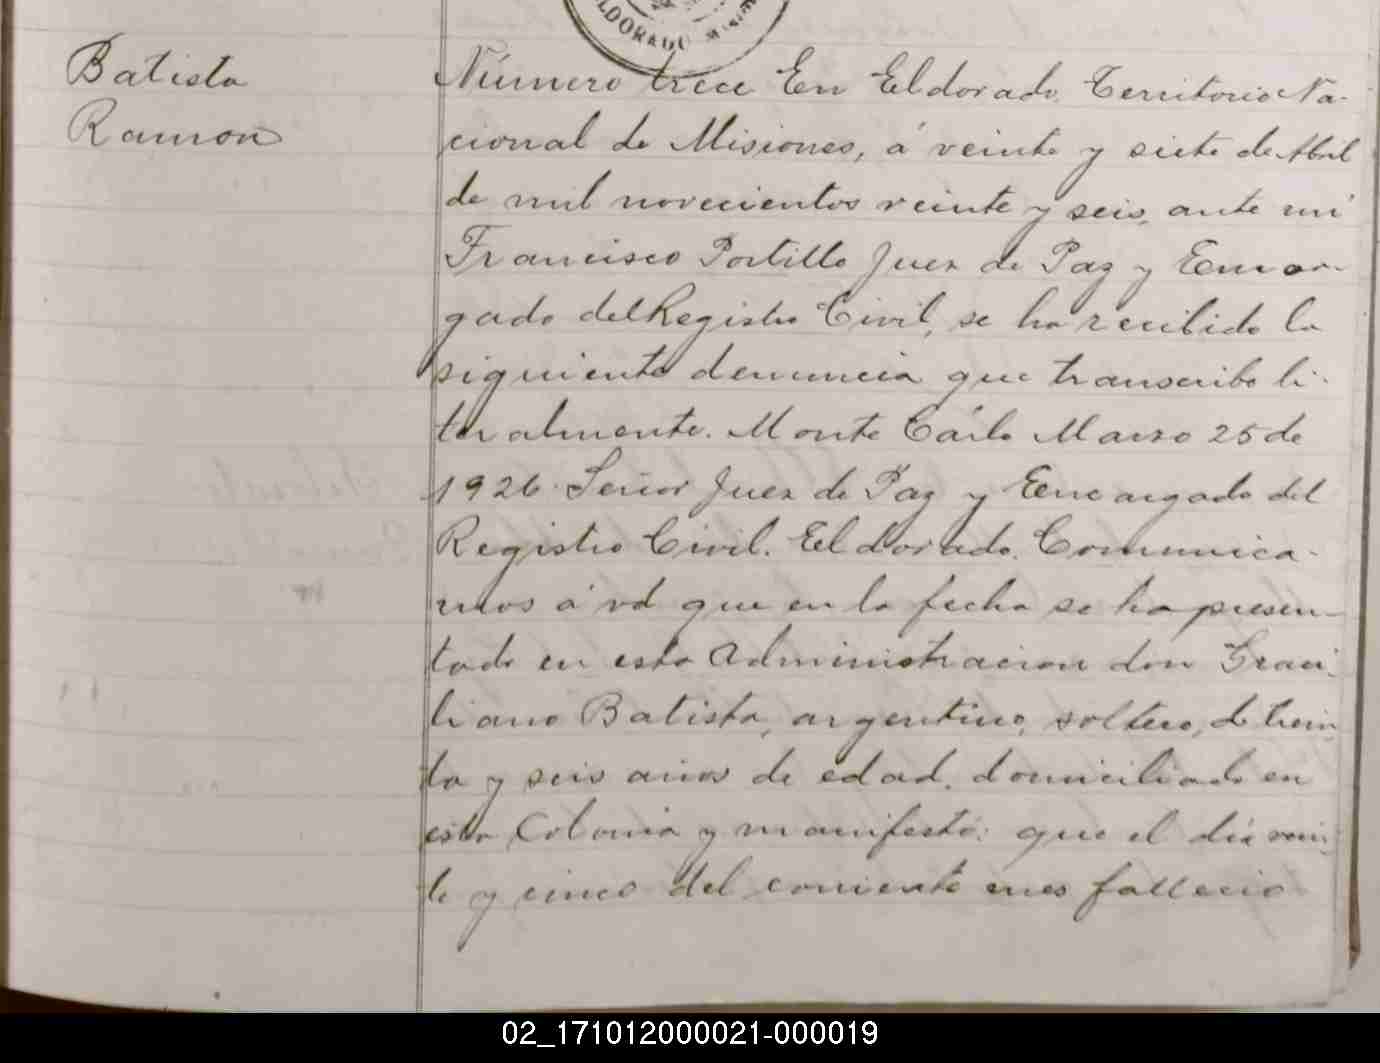 ELDORADO
Batista
Ramon
Número trece En Eldorado, Territorio Na-
cional de Misiones, á veinte y siete de Abril
de mil novecientos veinte y seis, ante mi
Francisco Portillo Juez de Paz y Encar-
gado del Registro Civil, se ha recibido la
siguiente denuncia que transcribo li-
teralmente. Monte Cárlo Marzo 25 de
1926. Señor Juez de Paz y Encargado del
Registro Civil. Eldorado. Comunica-
mos á vd que en la fecha se ha presen-
tado en esta Administracion don Graci-
liano Batista, argentino, soltero, de trein-
ta y seis años de edad, domiciliado en
esta Colonia y manifestó: que el día vein-
te y cinco del corriente mes fallecio
02_171012000021-000019